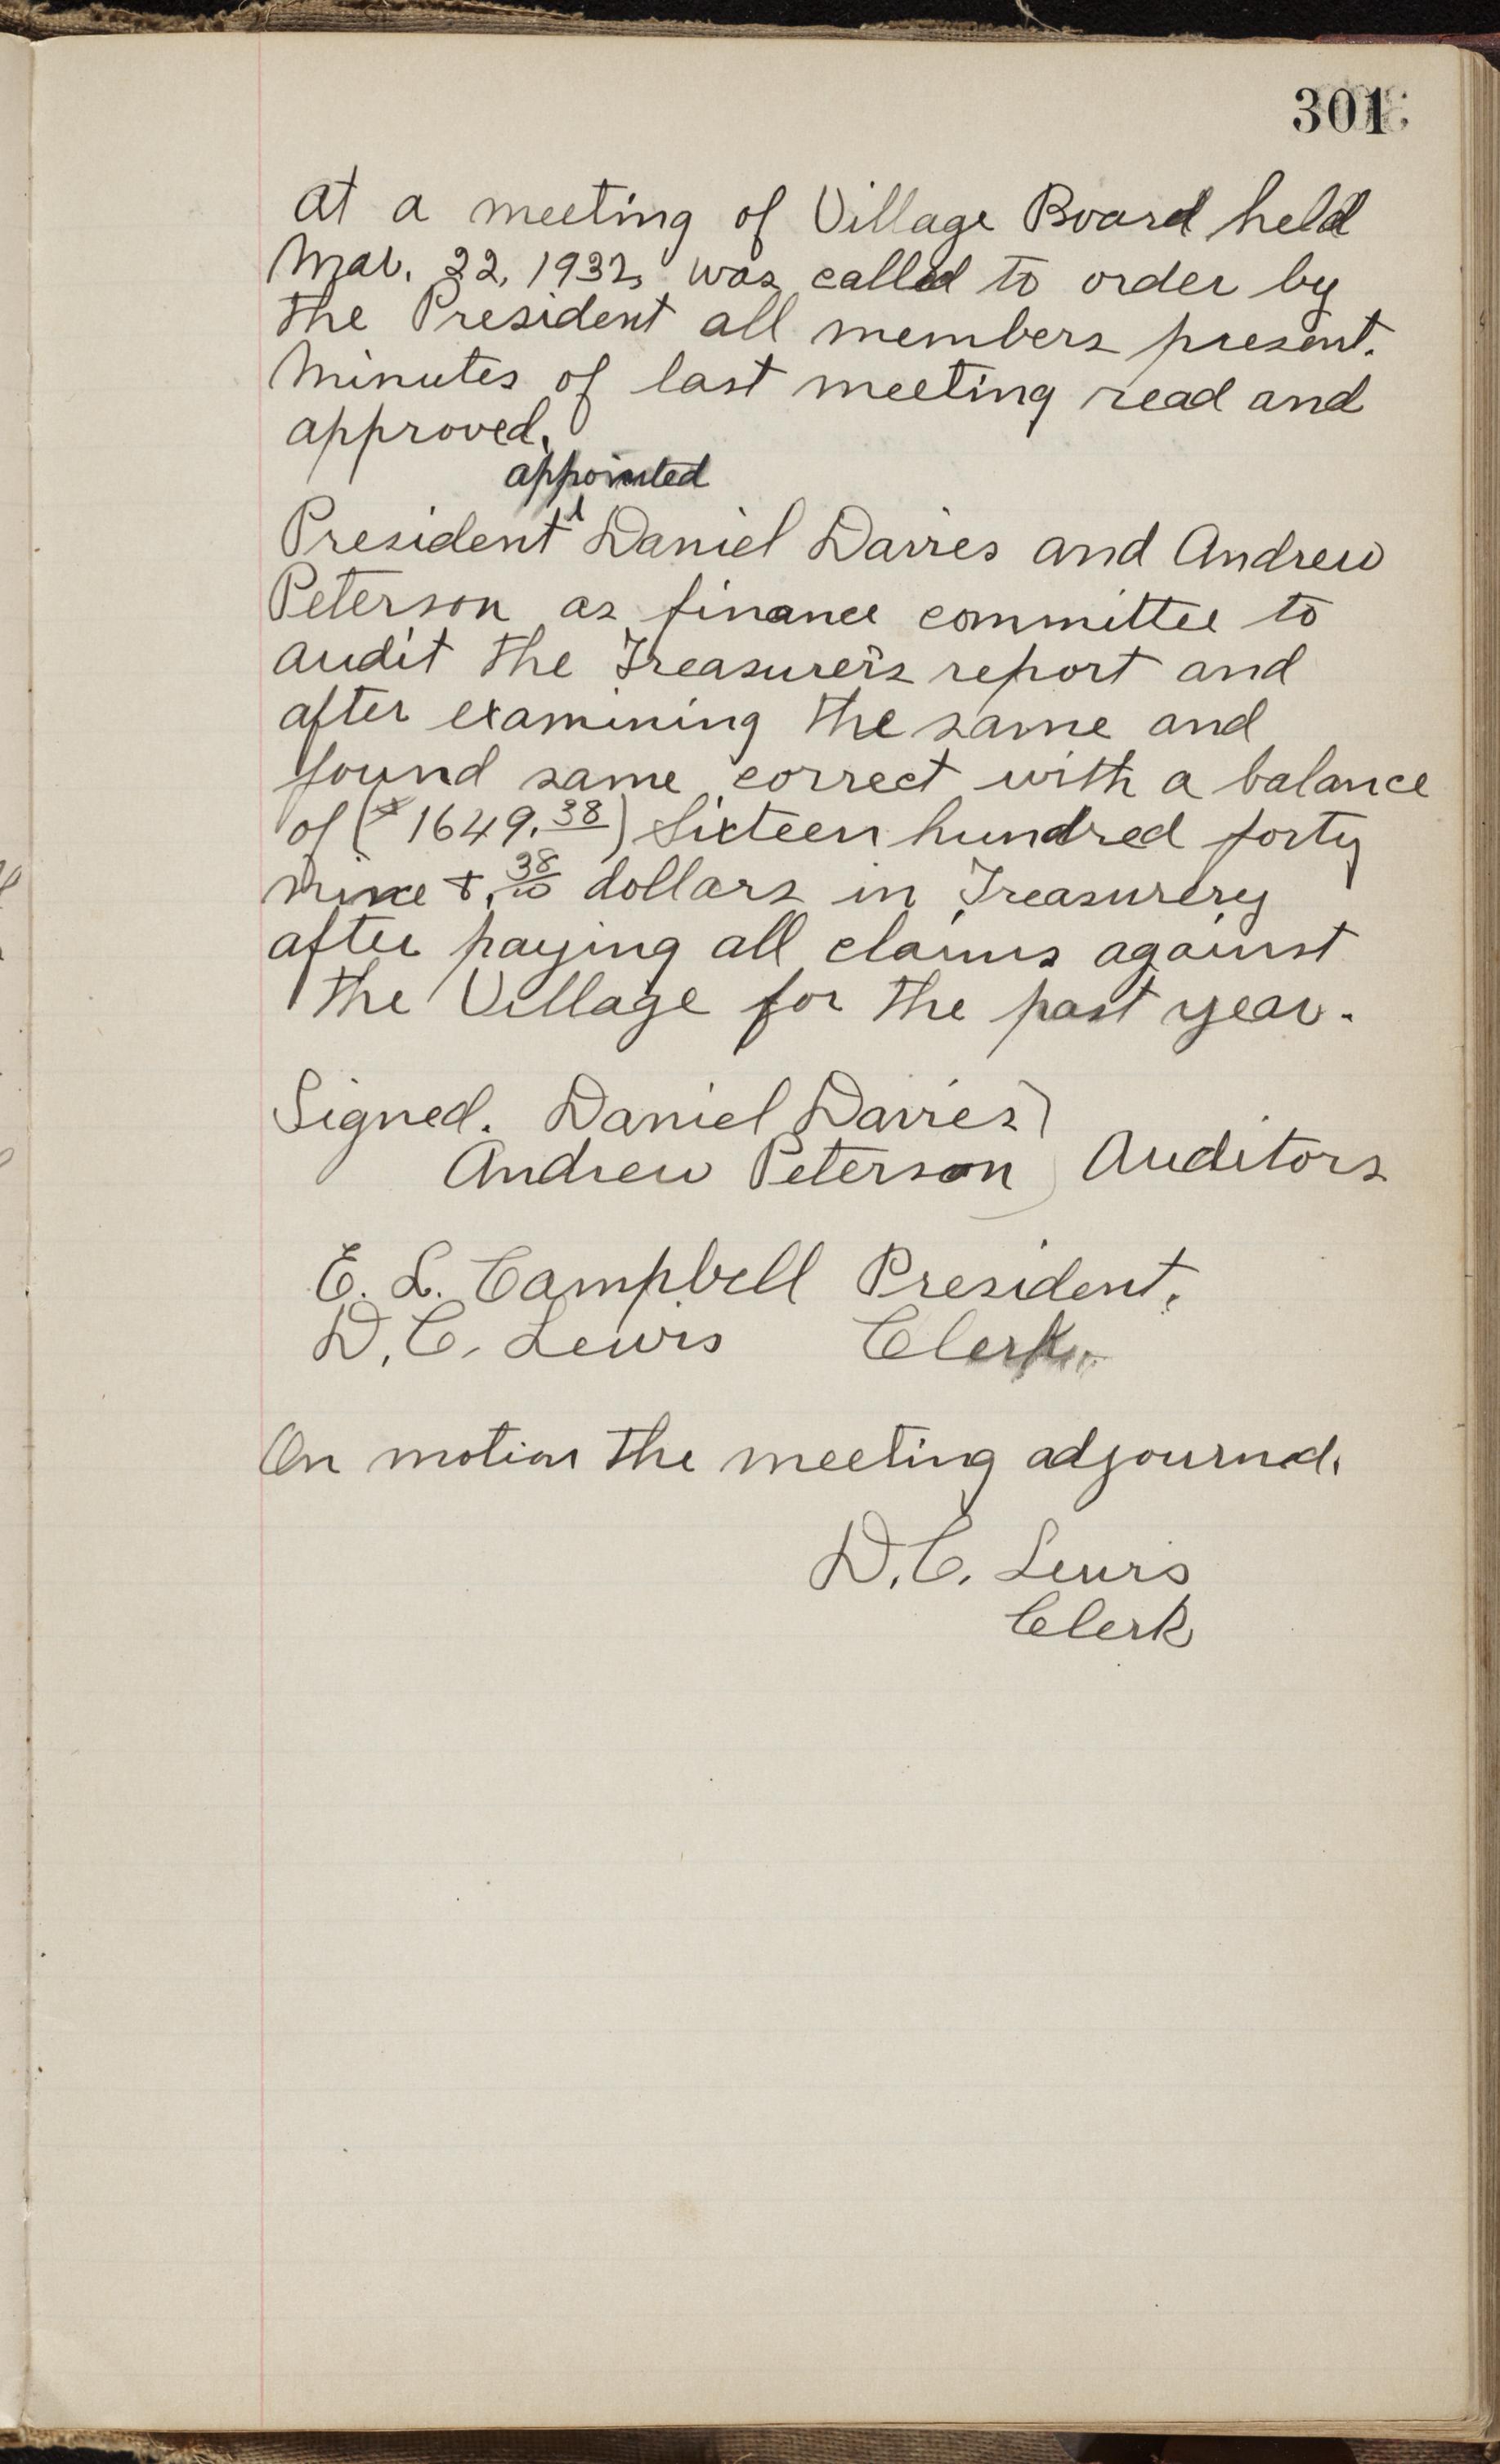 301
At a meeting of Village Board held
Mar. 22, 1932, was called to order by
the President all members present.
Minutes of last meeting read and
approved.
appointed
President ^ Daniel Davies and Andrew
Peterson as finance committee to
audit the Treasurer's report and
after examining the same and
found same correct with a balance
of ($1649.38) Sixteen hundred forty
nine &. 38/10 dollars in Treasurery
after paying all claims against
the Village for the past year.
Signed. Daniel Davies
Andrew Peterson } Auditors
E. L. Campbell President.
D. C. Lewis Clerk.
On motion the meeting adjournd.
D. C. Lewis
Clerk